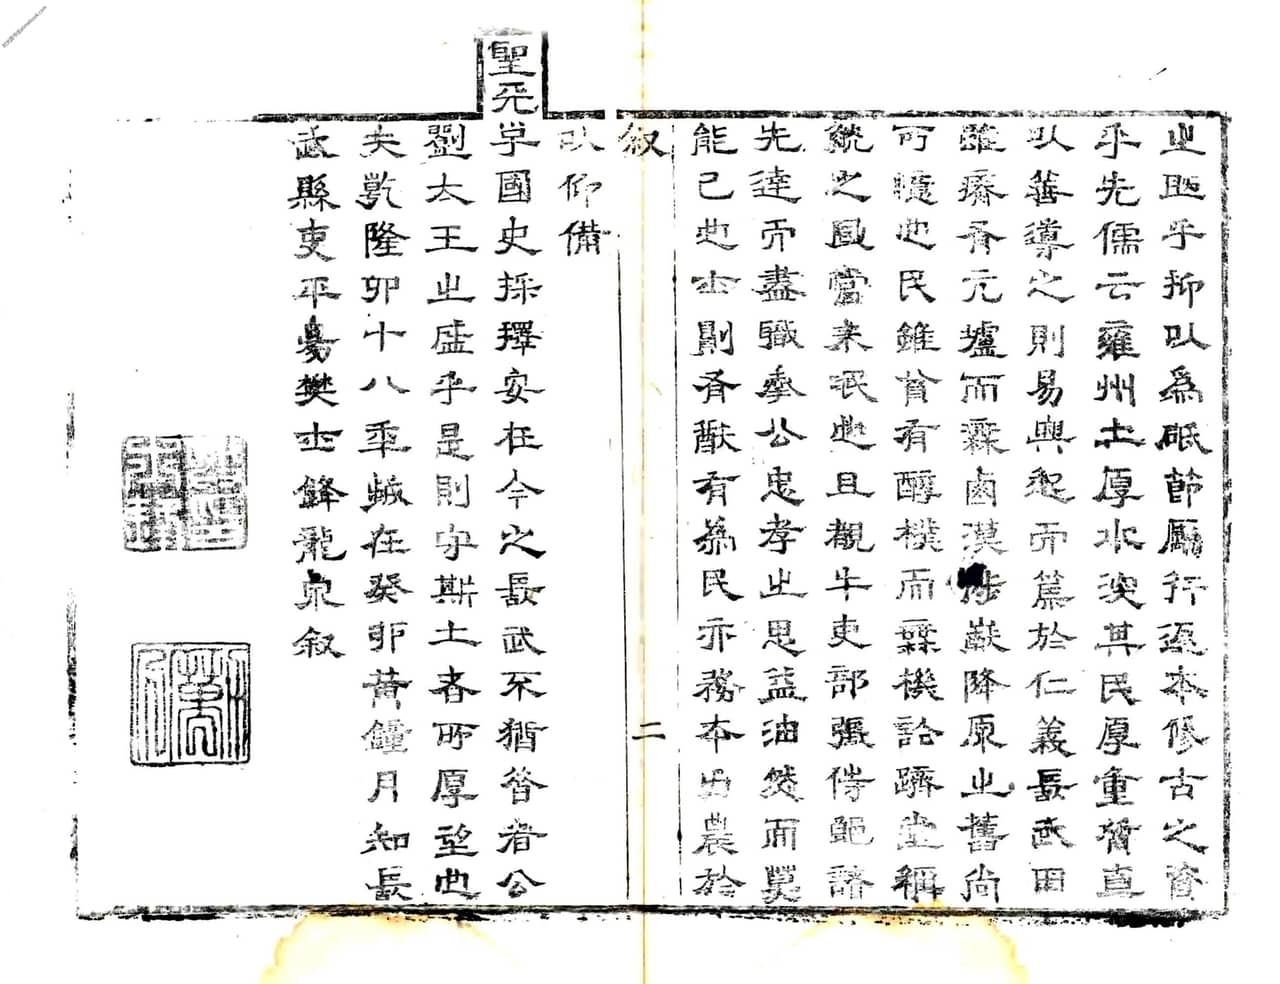 之助乎抑以為砥節厲行返本修古之資
乎先儒云雍州土厚水深其民厚重質直
以善導之則易興起而篤於仁義長武田
雖瘠有亢壚而無鹵漠陟巘降原之舊尚
可也民雖貧有醇樸而無機詐躋堂稱
觥之風當未泯也且觀牛吏部張侍郎諸
先達而盡職奉公忠孝之思益油然而莫
能已也士則有猷有為民亦務本力農於
叙 二
以仰備
聖天子國史採擇安在今之長武不猶昔者公
劉太王之盛乎是則守斯土者所厚望也
夫乾隆四十八年歲在癸卯黃鐘月知長
武縣事平昜樊士鋒龍泉叙